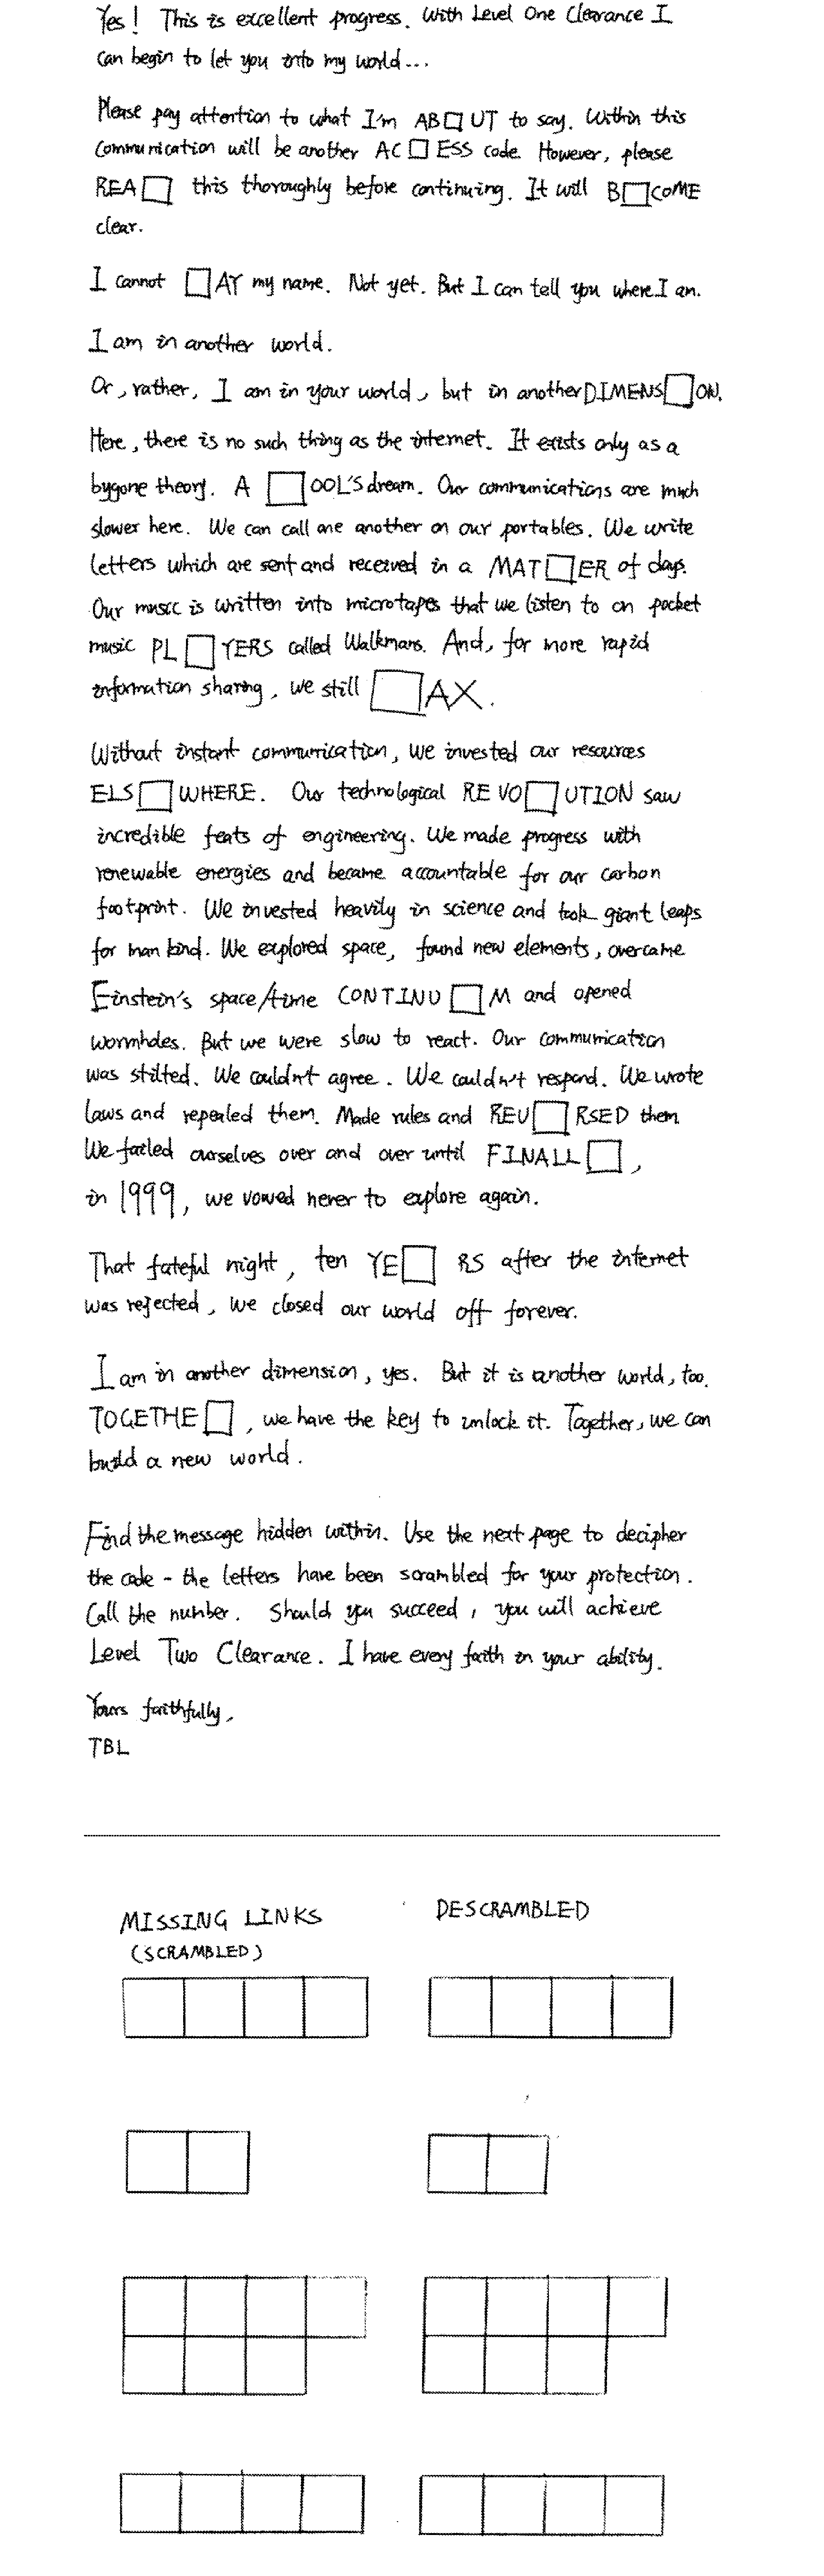 Yes! This is excellent progress. With Level One Clearance I
can begin to let you into my world...
Please pay attention to what I'm AB□UT to say. Within this
communication will be another AC□ESS code. However, please
REA□ this thoroughly before continuing. It will B□COME
clear.
I cannot □AY my name. Not yet. But I can tell you where I am.
I am in another world.
Or, rather, I am in your world, but in another DIMENS□ON.
Here, there is no such thing as the internet. It exists only as a
bygone theory. A □OOL'S dream. Our communications are much
slower here. We can call one another on our portables. We write
letters which are sent and received in a MAT□ER of days.
Our music is written into microtapes that we listen to on pocket
music PL□YERS called Walkmans. And, for more rapid
information sharing, we still □AX.
Without instant communication, we invested our resources
ELS□WHERE. Our technological REVO□UTION saw
incredible feats of engineering. We made progress with
renewable energies and became accountable for our carbon
footprint. We invested heavily in science and took giant leaps
for man kind. We explored space, found new elements, overcame
Einstein's space/time CONTINU□M and opened
wormholes. But we were slow to react. Our communication
was stilted. We couldn't agree. We couldn't respond. We wrote
laws and repealed them. Made rules and REV□RSED them
We failed ourselves over and over until FINALL□,
in 1999, we vowed never to explore again.
That fateful night, ten YE□RS after the internet
was rejected, we closed our world off forever.
I am in another dimension, yes. But it is another world, too.
TOGETHE□, we have the key to unlock it. Together, we can
build a new world.
Find the message hidden within. Use the next page to decipher
the code - the letters have been scrambled for your protection.
Call the number. Should you succeed, you will achieve
Level Two Clearance. I have every faith in your ability.
Yours faithfully,
TBL
MISSING LINKS
(SCRAMBLED)
DESCRAMBLED